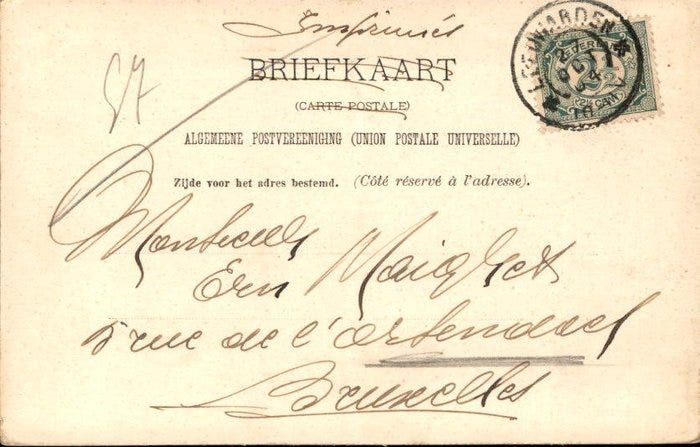 Imprimés
57
BRIEFKAART
(CARTE POSTALE)
ALGEMEENE POSTVEREENIGING (UNION POSTALE UNIVERSELLE)
Zijde voor het adres bestemd. (Côté réservé à l'adresse).
LEEUWARDEN
OCT
NEDERLAND
2½
Ern
5 rue de l'
Bruxelles